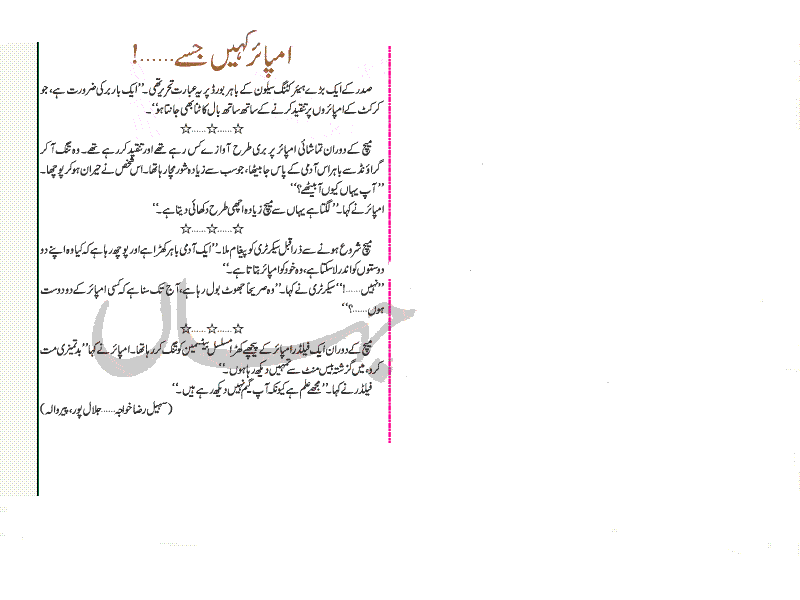 امپائر کہیں جسے......!
صدر کے ایک بڑے ہیئر کٹنگ سیلون کے باہر بورڈ پر یہ عبارت تحریر تھی۔ ’’ایک باربر کی ضرورت ہے، جو
کرکٹ کے امپائروں پر تنقید کرنے کے ساتھ ساتھ بال کاٹنا بھی جانتا ہو‘‘۔
☆......☆......☆
میچ کے دوران تماشائی امپائر پر بری طرح آوازے کس رہے تھے اور تنقید کر رہے تھے۔ وہ تنگ آ کر
گراؤنڈ سے باہر اس آدمی کے پاس جا بیٹھا، جو سب سے زیادہ شور مچا رہا تھا۔ اس شخص نے حیران ہو کر پوچھا۔
’’آپ یہاں کیوں آ بیٹھے؟‘‘
امپائر نے کہا۔ ’’لگتا ہے یہاں سے میچ زیادہ اچھی طرح دکھائی دیتا ہے۔‘‘
☆......☆......☆
میچ شروع ہونے سے ذرا قبل سیکرٹری کو پیغام ملا۔ ’’ایک آدمی باہر کھڑا ہے اور پوچھ رہا ہے کہ کیا وہ اپنے دو
دوستوں کو اندر لا سکتا ہے، وہ خود کو امپائر بتاتا ہے۔‘‘
’’نہیں......!‘‘ سیکرٹری نے کہا۔ ’’وہ صریحاً جھوٹ بول رہا ہے، آج تک سنا ہے کہ کسی امپائر کے دو دوست
ہوں......؟‘‘
☆......☆......☆
میچ کے دوران ایک فیلڈر امپائر کے پیچھے کھڑا مسلسل بیٹسمین کو تنگ کر رہا تھا۔ امپائر نے کہا ’’بدتمیزی مت
کرو، میں گزشتہ بیس منٹ سے تمہیں دیکھ رہا ہوں۔‘‘
فیلڈر نے کہا۔ ’’مجھے علم ہے کیونکہ آپ گیم نہیں دیکھ رہے ہیں۔‘‘
(سہیل رضا خواجہ......جلال پور، پیر والہ)
جہاں